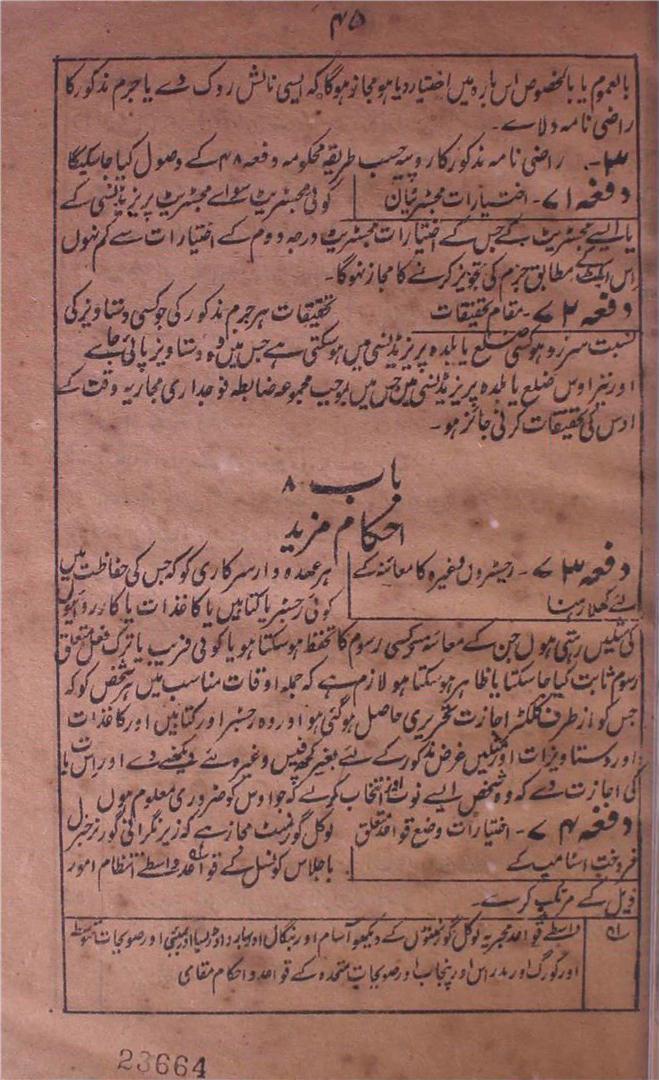 ۴۵
بالعموم یا بالخصوص اس بارہ میں اختیار دیا ہو مجاز ہوگا کہ ایسی نالش روک دے یا جرم مذکور کا
راضی نامہ دلاے۔
۳۔ راضی نامہ مذکور کا روپیہ حسب طریقہ محکومہ دفعہ ۴۸ کے وصول کیا جاسکیگا
دفعہ ۷۱۔ اختیارات مجسٹریٹان
کوئی مجسٹریٹ سواے مجسٹریٹ پریزیڈنسی کے
یا ایسے مجسٹریٹ کے جس کے اختیارات مجسٹریٹ درجہ دوم کے اختیارات سے کم نہوں
اس ایکٹ کے مطابق جرم کی تجویز کرنے کا مجاز نہوگا۔
دفعہ ۷۲۔ مقام تحقیقات
تحقیقات ہر جرم مذکور کی جو کسی دستاویز کی
نسبت سرزد ہو کسی ضلع یا بلدہ پریزیڈنسی میں ہوسکتی ہے جس میں وہ دستاویز پائی جاے
اور نیز اوس ضلع یا بلدہ پریزیڈنسی میں جس میں بموجب مجموعہ ضابطہ فوجداری مجاریہ وقت کے
اوس کی تحقیقات کرنی جائز ہو۔
باب ۸
احکام مزید
دفعہ ۷۳۔ رجسٹرون وغیرہ کا معائنہ کے
لئے کھلا رہنا
ہر عہدہ دار سرکاری کو کہ جس کی حفاظت میں
کوئی رجسٹر یا کتابیں یا کاغذات یا کارروائیوں
کی مثلیں رہتی ہوں جن کے معائنہ سے کسی رسوم کا تحفظ ہوسکتا ہو یا کوئی فریب یا ترک فعل متعلق
رسوم ثابت کیا جاسکتا یا ظاہر ہوسکتا ہو لازم ہے کہ جملہ اوقات مناسب میں ہر شخص کو کہ
جس کو از طرف کلکٹر اجازت تحریری حاصل ہوگئی ہو اور وہ رجسٹر اور کتابیں اور کاغذات
اور دستاویزات اور مثلیں غرض مذکور کے لئے بغیر کچھ فیس وغیرہ لئے دیکھنے دے اور اس بات
کی اجازت دے کہ وہ شخص ایسے نوٹ اور انتخاب کرلے کہ جو اوس کو ضروری معلوم ہوں
دفعہ ۷۴۔ اختیارات وضع قواعد متعلق
فروخت اسٹامپ کے
لوکل گورنمنٹ مجاز ہے کہ زیر نگرانی گورنر جنرل
باجلاس کونسل کے قواعد واسطے انتظام امور
ذیل کے مرتب کرے۔
واسطے قواعد مجریہ لوکل گورنمنٹوں کے دیکھو آسام اور بنگال اور بہار و اوڑیسا اور بمبئی اور صوبجات متوسط
اور کورگ اور مدراس اور پنجاب اور صوبجات متحدہ کے قواعد و احکام مقامی
23664